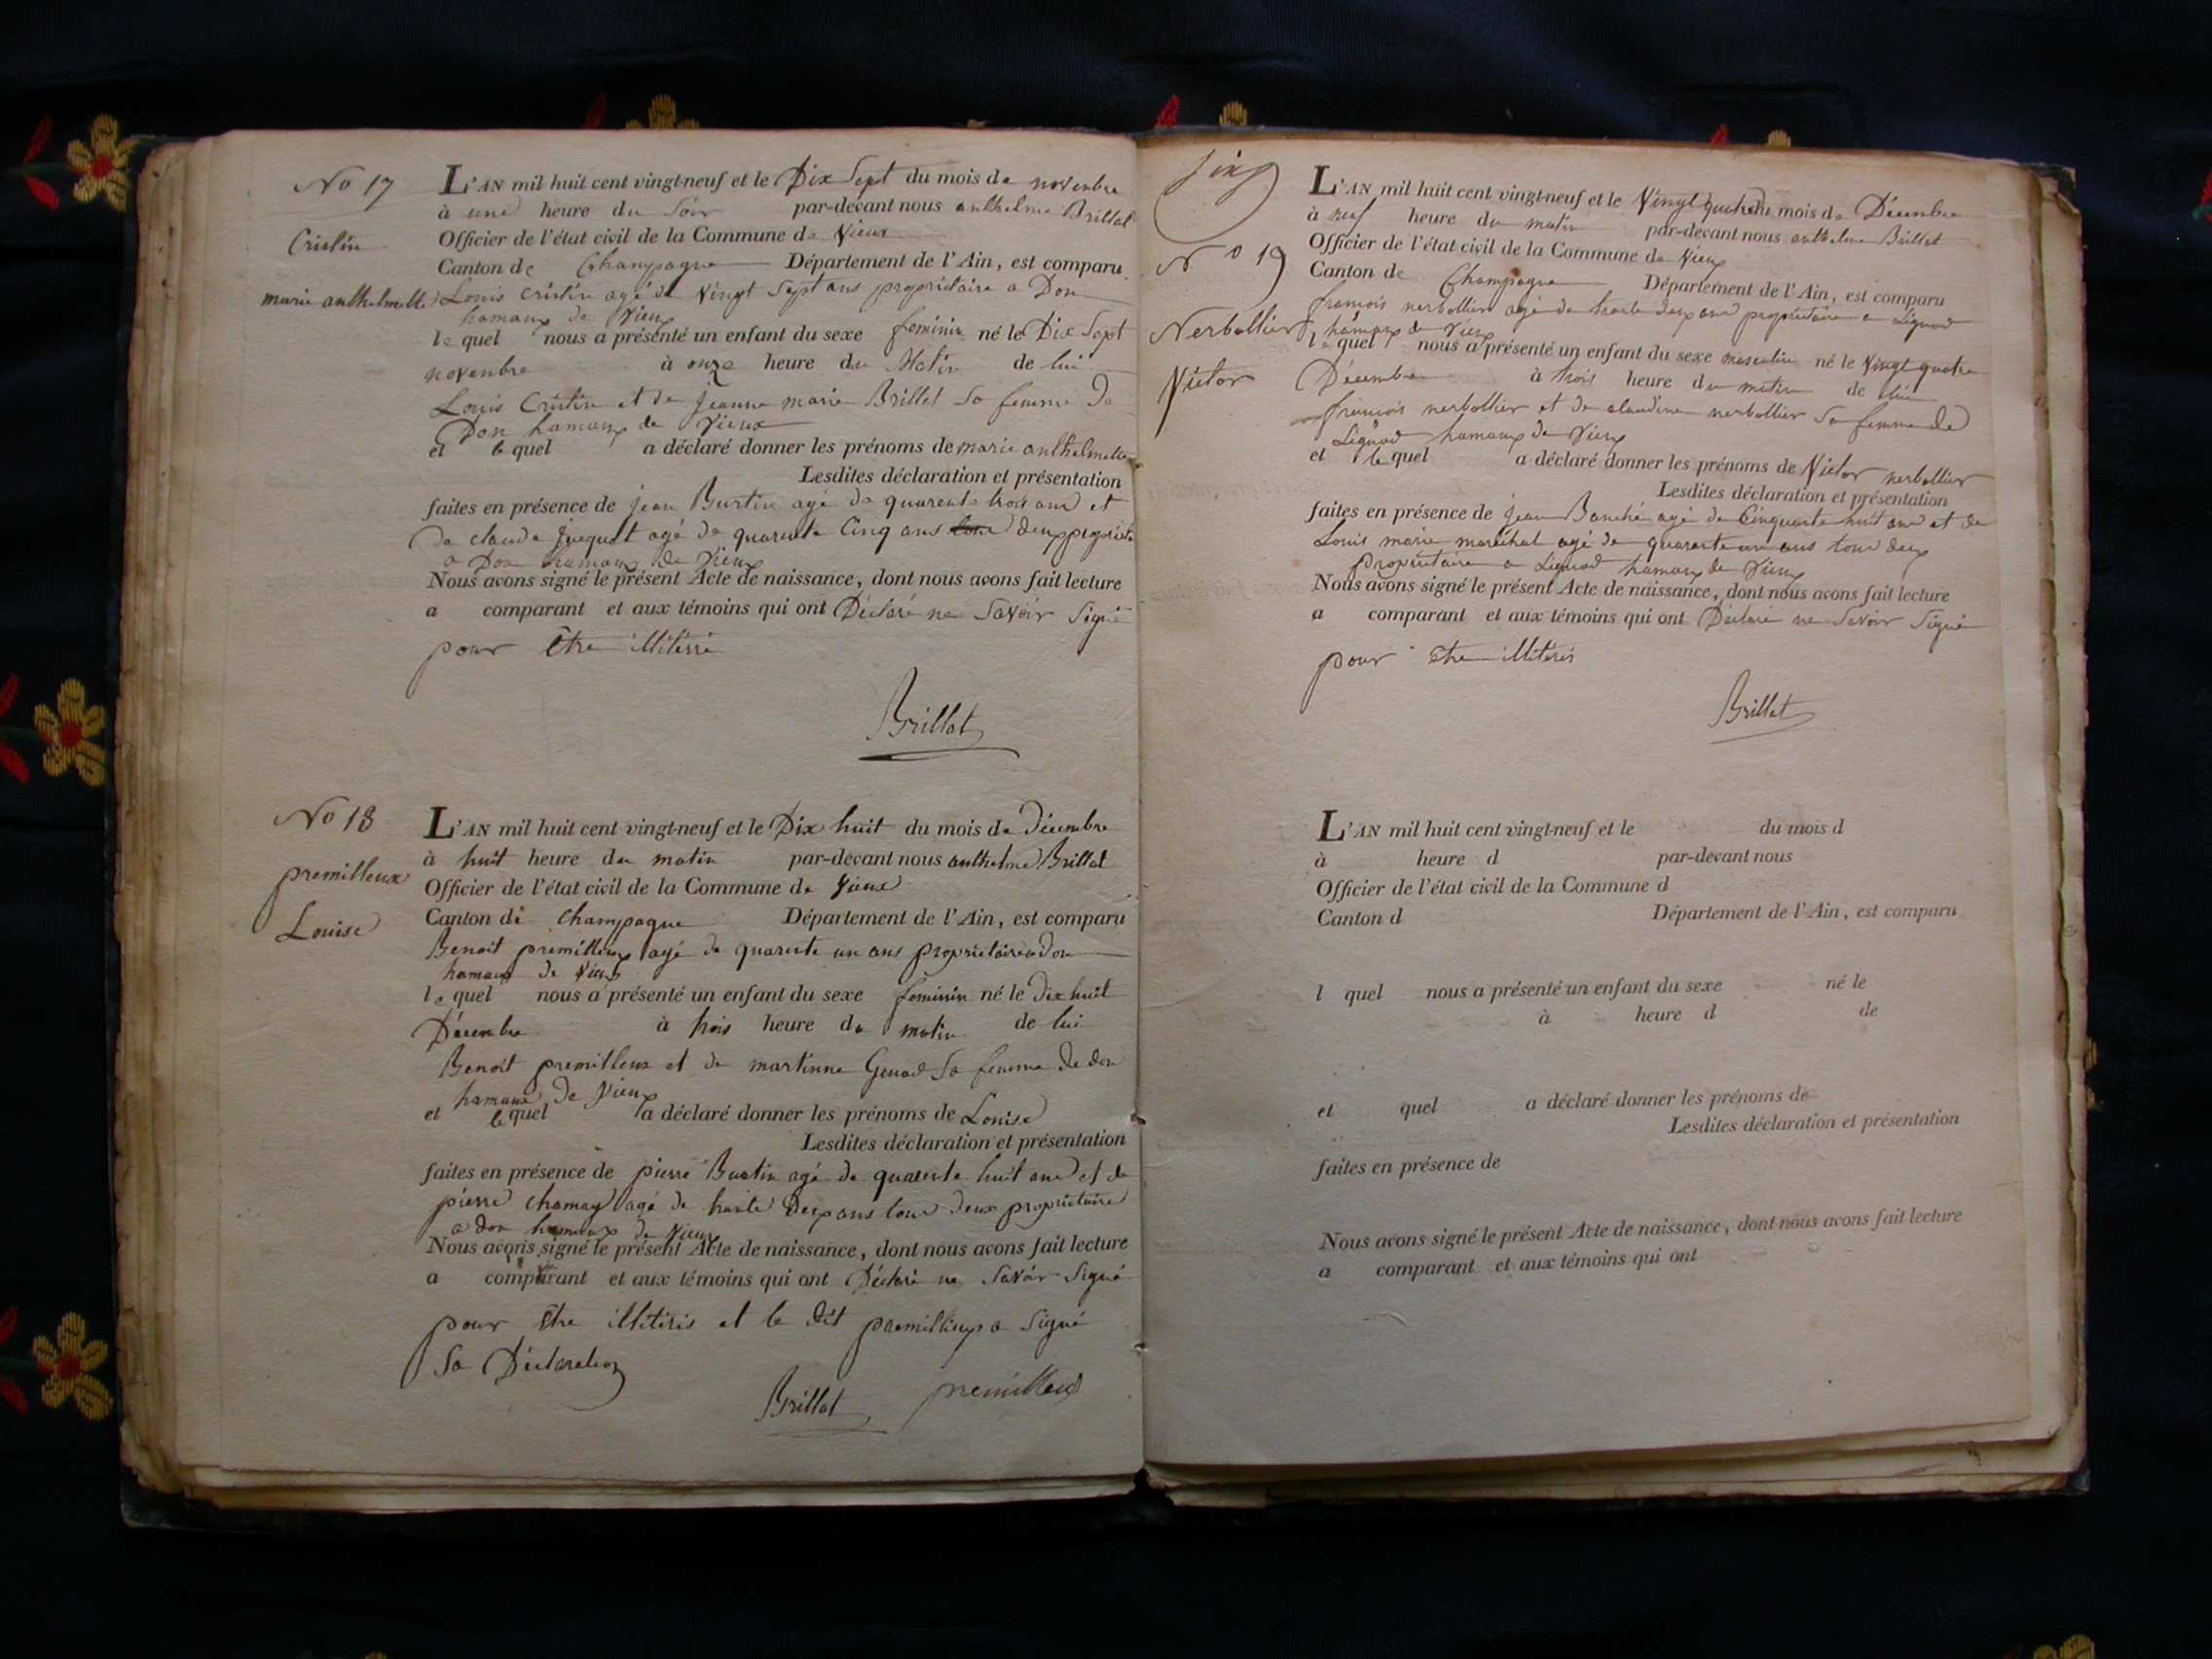 No 17
Cristin
marie anthelmette
L'AN mil huit cent vingt-neuf et le Dix Sept du mois de novenbre
à une heure du Soir par-devant nous anthelme Brillat
Officier de l'état civil de la Commune de Vieux
Canton de Champagne Département de l'Ain, est comparu
Louis Cristin agé de Vingt Sept ans propriétaire a Don
hamaux de Vieux
le quel nous a présenté un enfant du sexe feminin né le Dix Sept
novenbre à onze heure du Matin de lui
Louis Cristin et de jeanne marie Brillet Sa femme de
Don hamaux de Vieux
et le quel a déclaré donner les prénoms de marie anthelmette
Lesdites déclaration et présentation
faites en présence de jean Burtin agé de quarente trois ans et
de claude juquet agé de quarente Cinq ans deux propriétaire
a Don hamaux de Vieux
Nous avons signé le présent Acte de naissance, dont nous avons fait lecture
a comparant et aux témoins qui ont Déclaré ne Savoir Signé
pour être illitéré
Brillat
No 18
premilleux
Louise
L'AN mil huit cent vingt-neuf et le Dix huit du mois de Décembre
à huit heure du matin par-devant nous anthelme Brillat
Officier de l'état civil de la Commune de Vieux
Canton de Champagne Département de l'Ain, est comparu
Benoit premilleux agé de quarente un ans propriétaire a don
hamaux de Vieux
le quel nous a présenté un enfant du sexe feminin né le Dix huit
Décembre à trois heure du matin de lui
Benoit premilleux et de martinne Genod Sa femme de don
hamaux de Vieux
et le quel a déclaré donner les prénoms de Louise
Lesdites déclaration et présentation
faites en présence de pierre Burtin agé de quarente huit ans et de
pierre chamay agé de trante Deux ans tous deux propriétaire
a don hamaux de Vieux
Nous avons signé le présent Acte de naissance, dont nous avons fait lecture
a comparant et aux témoins qui ont Déclaré ne Savoir Signé
pour être illitéris et le Dit premilleux a Signé
Sa Déclaration
Brillat premilleux
No 19
Nerbollier
Victor
L'AN mil huit cent vingt-neuf et le Vingt quatre du mois de Décembre
à neuf heure du matin par-devant nous anthelme Brillat
Officier de l'état civil de la Commune de Vieux
Canton de Champagne Département de l'Ain, est comparu
françois nerbollier agé de trante deux ans propriétaire a Lignod
hamaux de Vieux
le quel nous a présenté un enfant du sexe masculin né le Vingt quatre
Décembre à trois heure du matin de lui
françois nerbollier et de claudine nerbollier Sa femme de
Lignod hamaux de Vieux
et le quel a déclaré donner les prénoms de Victor nerbollier
Lesdites déclaration et présentation
faites en présence de jean Banché agé de Cinquante huit ans et de
Louis marie maréchal agé de quarante un ans tous deux
propriétaire a Lignod hamaux de Vieux
Nous avons signé le présent Acte de naissance, dont nous avons fait lecture
a comparant et aux témoins qui ont Déclaré ne Savoir Signé
pour être illitéris
Brillat
L'AN mil huit cent vingt-neuf et le du mois d
à heure d par-devant nous
Officier de l'état civil de la Commune d
Canton d Département de l'Ain, est comparu
l quel nous a présenté un enfant du sexe né le
à heure d de
et quel a déclaré donner les prénoms de
Lesdites déclaration et présentation
faites en présence de
Nous avons signé le présent Acte de naissance, dont nous avons fait lecture
a comparant et aux témoins qui ont